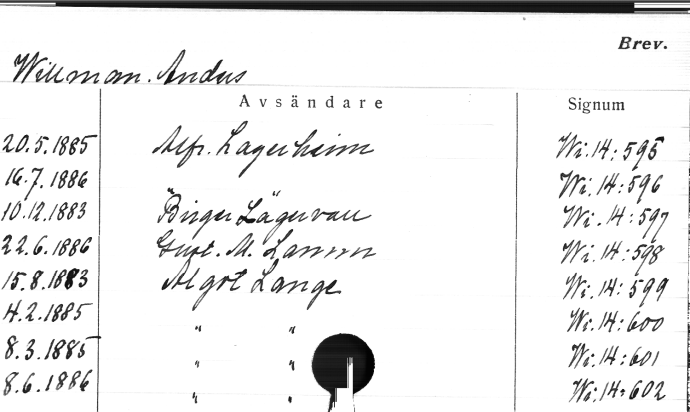 Brev.
Willman. Andus
Avsändare Signum
20.5.1885 Alfr. Lagerheim Wi.14:595
16.7.1886 " " Wi.14:596
10.12.1883 Birger Lägervall Wi.14:597
22.6.1886 Gust. M. Lamm Wi.14:598
15.8.1883 Algot Lange Wi.14:599
4.2.1885 " " Wi.14:600
8.3.1885 " " Wi.14:601
8.6.1886 " " Wi.14:602